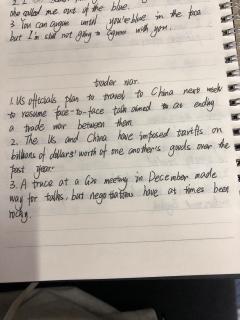 she called me out of the blue.
3. You can argue until you're blue in the face
but I'm still not going to agree with you.
trader war.
1. US officials plan to travel to China next week
to resume face-to-face talks aimed to as ending
a trade war between them.
2. The US and China have imposed tariffs on
billions of dollars' worth of one another's goods over the
past year.
3. A truce at a G20 meeting in December made
way for talks, but negotiations have at times been
rocky.